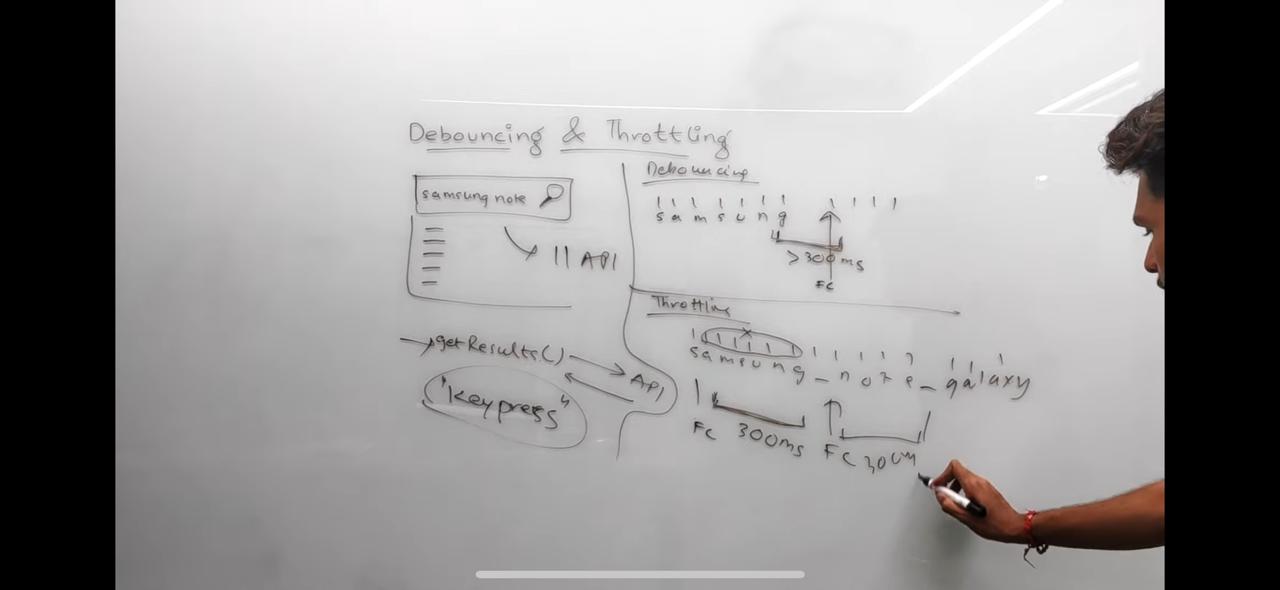 Debouncing & Throttling
samsung note
|| API
getResults()
API
"Keypress"
Debouncing
samsung
>300ms
FC
Throttling
samsung_note_galaxy
FC 300ms FC 300m